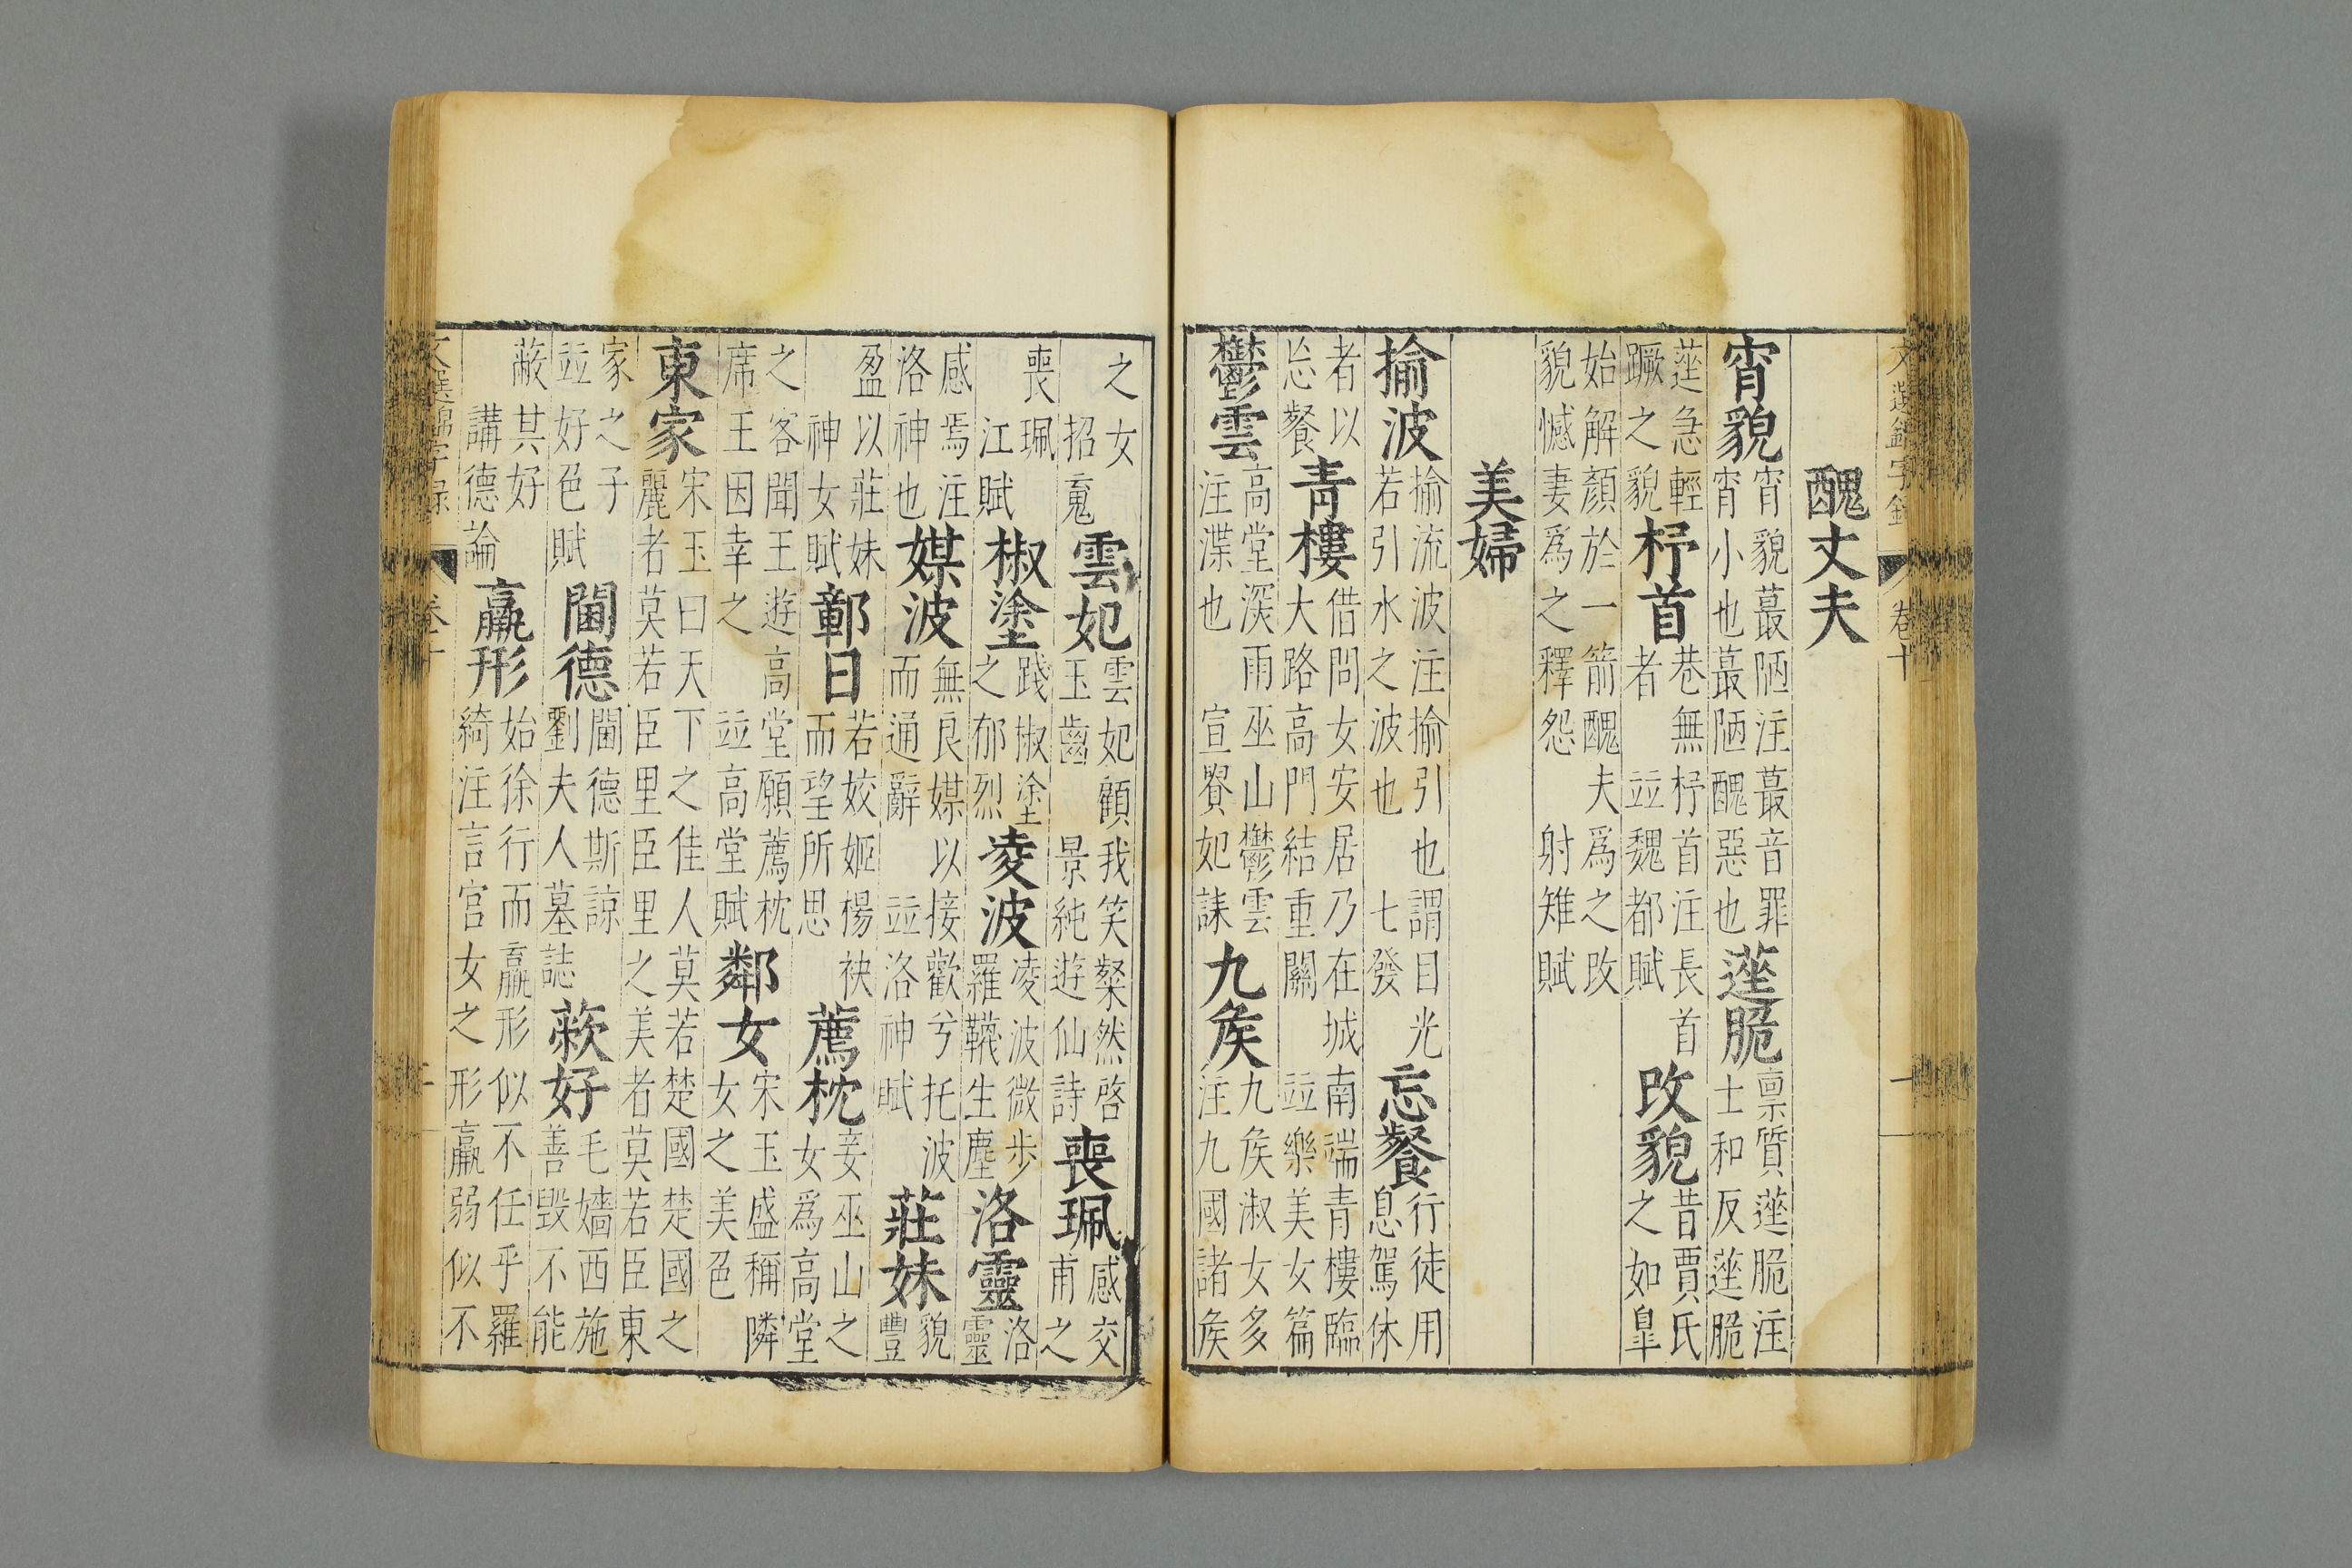 文選錦字錄 卷十 一
醜丈夫
宵貌 宵貌蕞陋注蕞音罪宵小也蕞陋醜惡也 蓌脆 禀質蓌脆注士和反蓌脆
蓌急輕蹶之貌 杼首 巷無杼首注長首者 並魏都賦 改貌 昔賈氏之如臯
始解顏於一箭醜夫爲之改貌憾妻爲之釋怨 射雉賦
美婦
揄波 揄流波注揄引也謂目光若引水之波也 七發 忘餐 行徒用息駕休
者以忘餐 青樓 借問女安居乃在城南端青樓臨大路高門結重關 並樂美女篇
鬱雲 高堂渓雨巫山鬱雲注渫也 宣貴妃誄 九矦 九矦淑女多注九國諸矦
之女招䰟 雲妃 雲妃顧我笑粲然啓玉齒 景純遊仙詩 喪珮 感交甫之
喪珮江賦 椒塗 踐椒塗之郁烈 凌波 凌波微步羅韈生塵 洛靈 洛靈
感焉注洛神也 媒波 無良媒以接歡兮托波而通辭 並洛神賦 莊妹 貌豐
盈以莊妹神女賦 鄣日 若姣姬楊袂而望所思 薦枕 妾巫山之女爲高堂
之客聞王遊高堂願薦枕席王因幸之 並高堂賦 鄰女 宋玉盛稱隣女之美色
東家 宋玉曰天下之佳人莫若楚國楚國之麗者莫若臣里臣里之美者莫若臣東
家之子並好色賦 閫德 閫德斯諒劉夫人墓誌 蔽好 毛嬙西施善毀不能
蔽其好講德論 羸形 始徐行而羸形似不任乎羅綺注言宮女之形羸弱似不
文選錦字錄 卷十